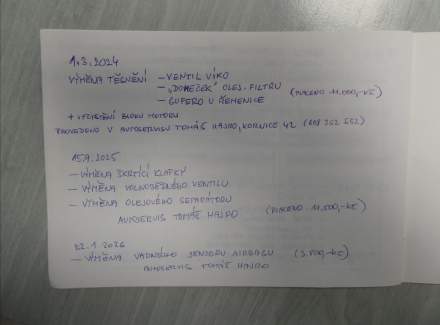 1.3.2024
VÝMĚNA TĚSNĚNÍ – VENTIL VÍKO
– „DOMEČEK" OLEJ. FILTRU
– GUFERO U ŘEMENICE (PLACENO 11.000,-KČ)
+ VYČIŠTĚNÍ BLOKU MOTORU
PROVEDENO V AUTOSERVISU TOMÁŠ HAJRO, KORNICE 42
2025
– VÝMĚNA ŠKRTÍCÍ KLAPKY
– VÝMĚNA VOLNOBĚŽNÉHO VENTILU
– VÝMĚNA OLEJOVÉHO SEPARÁTORU
AUTOSERVIS TOMÁŠ HAJRO (PLACENO 11.500,-KČ)
22.1.2026
– VÝMĚNA VADNÉHO SENSORU AIRBAGU
AUTOSERVIS TOMÁŠ HAJRO